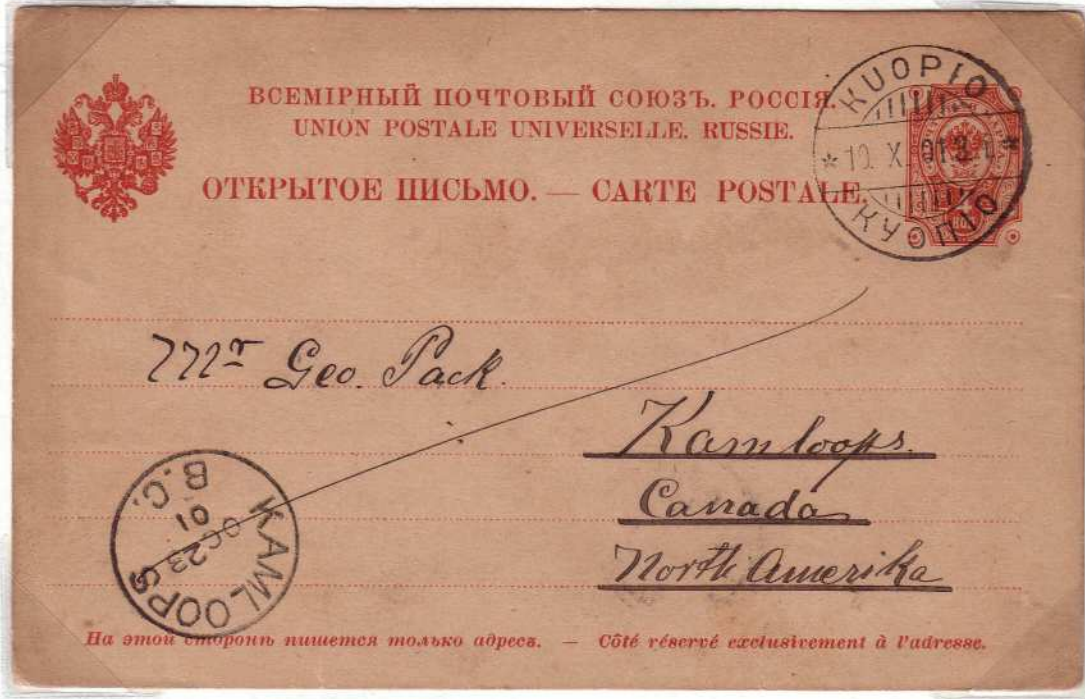 ВСЕМІРНЫЙ ПОЧТОВЫЙ СОЮЗЪ. РОССІЯ.
UNION POSTALE UNIVERSELLE. RUSSIE.
ОТКРЫТОЕ ПИСЬМО. — CARTE POSTALE.
KUOPIO
* 10. X. 01. *
КУОПІО
Mr Geo. Pack.
Kamloops.
Canada
North Amerika
KAMLOOPS
OC 23
01
B.C.
На этой сторонѣ пишется только адресъ. — Côté réservé exclusivement à l'adresse.